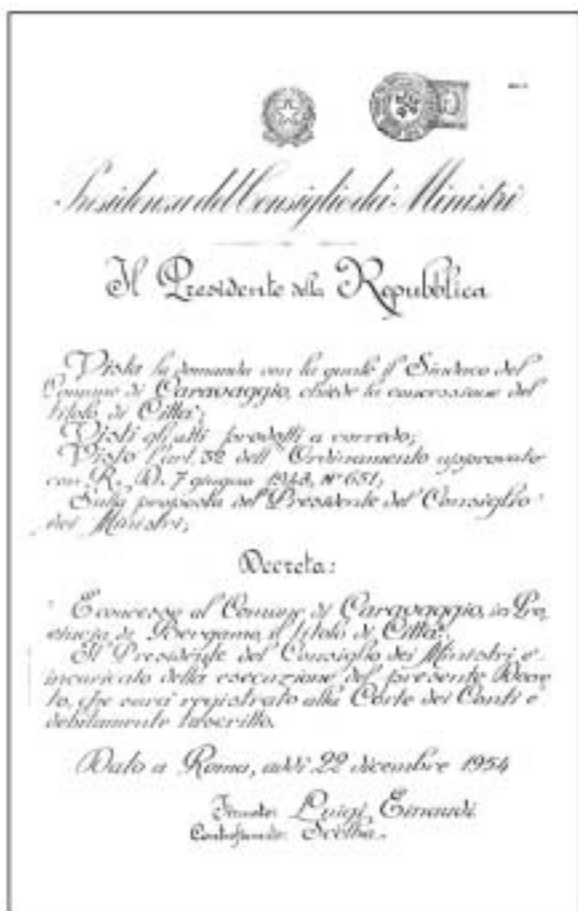 Presidenza del Consiglio dei Ministri
Il Presidente della Repubblica
Vista la domanda con la quale il Sindaco del
Comune di Caravaggio, chiede la concessione del
titolo di Città;
Visti gli atti prodotti a corredo;
Visto l'art. 32 dell'Ordinamento approvato
con R. D. 7 giugno 1943, N° 651;
Sulla proposta del Presidente del Consiglio
dei Ministri;
Decreta:
È concesso al Comune di Caravaggio, in Pro=
vincia di Bergamo, il titolo di Città.
Il Presidente del Consiglio dei Ministri è
incaricato della esecuzione del presente Decre=
to, che sarà registrato alla Corte dei Conti e
debitamente trascritto.
Dato a Roma, addì 22 dicembre 1954
Firmato: Luigi Einaudi
Controfirmato: Scelba.